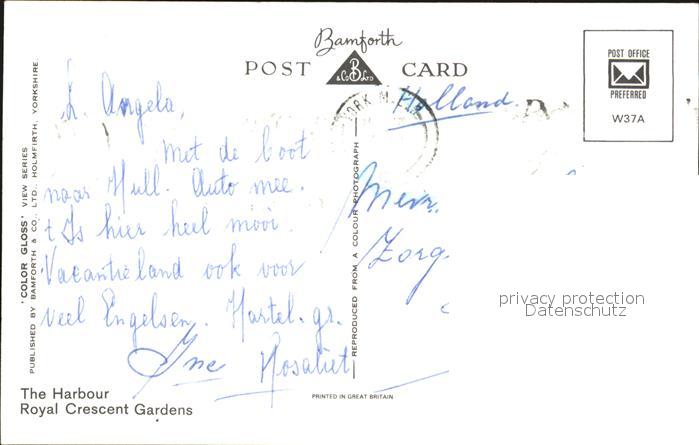 Bamforth
POST CARD
B
& Co Ltd
POST OFFICE
PREFERRED
W37A
YORK
Holland.
L. Angela,
Met de boot
naar Hull. Auto mee.
't Is hier heel mooi.
Vacantieland ook voor
veel Engelsen. Hartel. gr.
Ine Rosaliet
Mevr.
Zorg
privacy protection
Datenschutz
'COLOR GLOSS' VIEW SERIES
PUBLISHED BY BAMFORTH & CO., LTD., HOLMFIRTH, YORKSHIRE.
REPRODUCED FROM A COLOUR PHOTOGRAPH
The Harbour
Royal Crescent Gardens
PRINTED IN GREAT BRITAIN